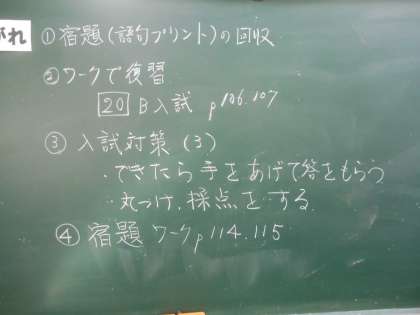 がれ
①宿題(語句プリント)の回収
②ワークで復習
20 B入試 p106.107
③入試対策(3)
・できたら手をあげて答をもらう
・丸つけ、採点をする。
④宿題 ワークp114.115